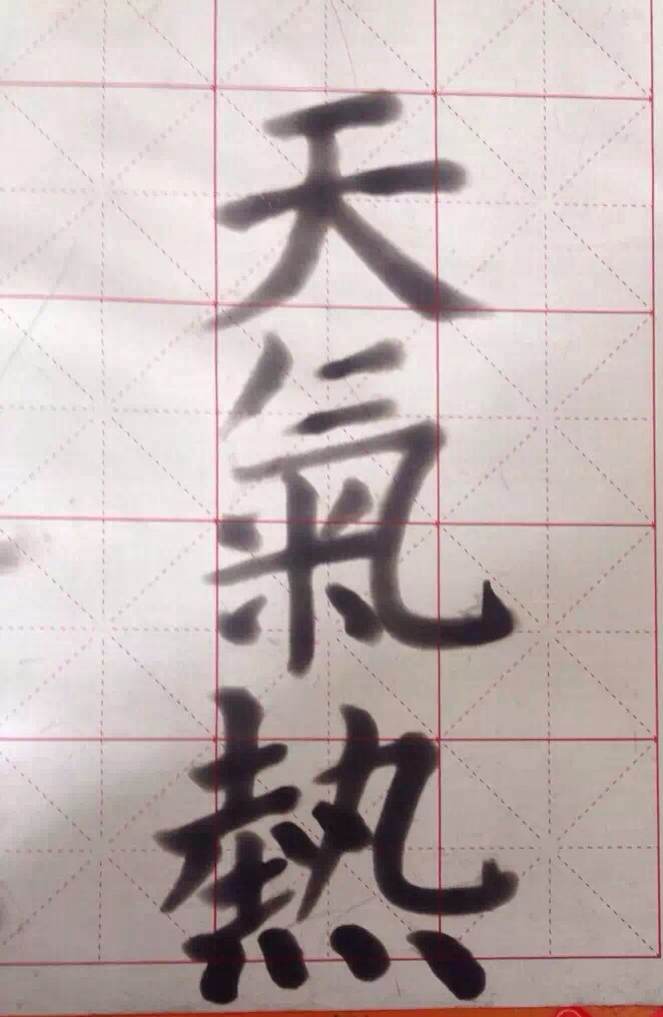 天氣熱